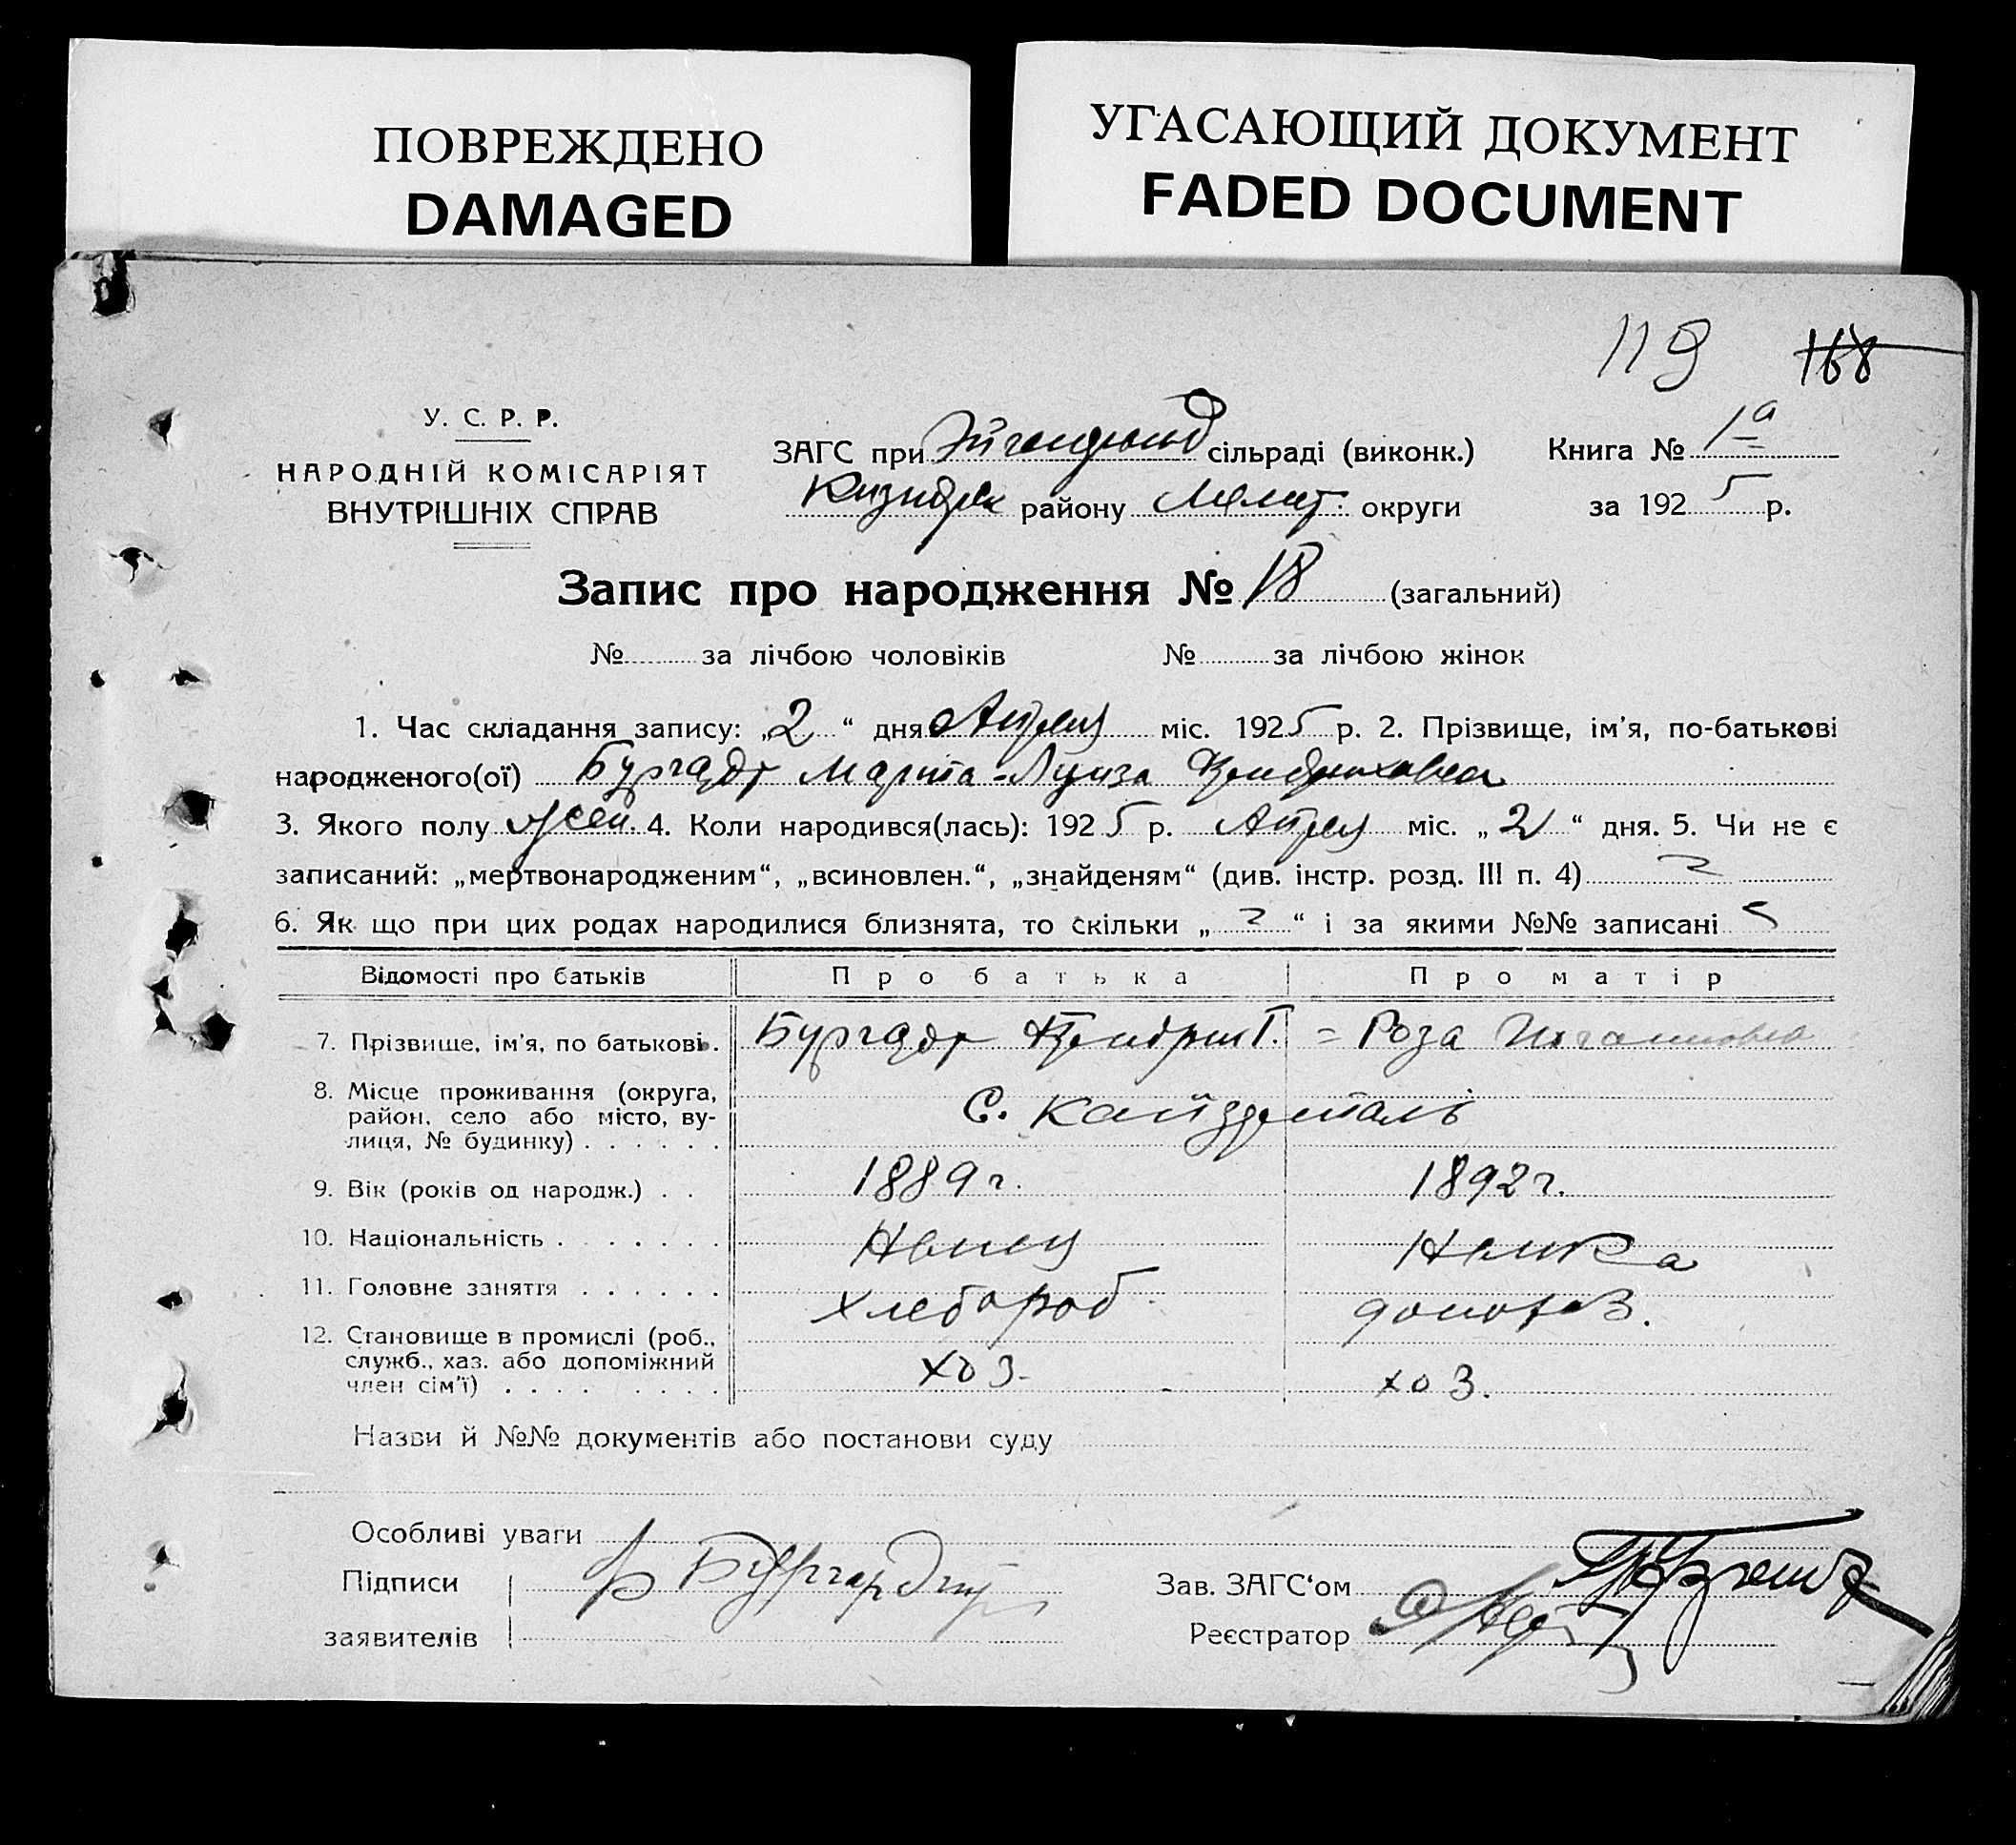 ПОВРЕЖДЕНО
DAMAGED
УГАСАЮЩИЙ ДОКУМЕНТ
FADED DOCUMENT
119 168
У. С. Р. Р.
НАРОДНІЙ КОМІСАРІЯТ
ВНУТРІШНІХ СПРАВ
ЗАГС при сільраді (виконк.)
району Мелит. округи
Книга № 1а
за 1925 р.
Запис про народження № 18 (загальний)
№ за лічбою чоловіків № за лічбою жінок
1. Час складання запису: „2“ дня Апреля міс. 1925 р. 2. Прізвище, ім'я, по-батькові
народженого(ої) Бургадт Марта-Луиза Гендриховна
3. Якого полу жен. 4. Коли народився(лась): 1925 р. Апреля міс. „2“ дня. 5. Чи не є
записаний: „мертвонародженим“, „всиновлен.“, „знайденям“ (див. інстр. розд. III п. 4)
6. Як що при цих родах народилися близнята, то скільки „ “ і за якими №№ записані
Відомості про батьків Про батька Про матір
7. Прізвище, ім'я, по батькові. Бургадт Гендрих Г. = Роза Иогановна
8. Місце проживання (округа,
район, село або місто, ву-
лиця, № будинку) . . . . . . С. Кайзерталь
9. Вік (років од народж.) . . 1889 г. 1892 г.
10. Національність . . . . . . . Немец Немка
11. Головне заняття . . . . . . Хлебороб домохоз.
12. Становище в промислі (роб.,
служб., хаз. або допоміжний
член сім'ї) . . . . . . . . хоз. хоз.
Назви й №№ документів або постанови суду
Особливі уваги
Підписи
заявителів
Зав. ЗАГС'ом
Реєстратор